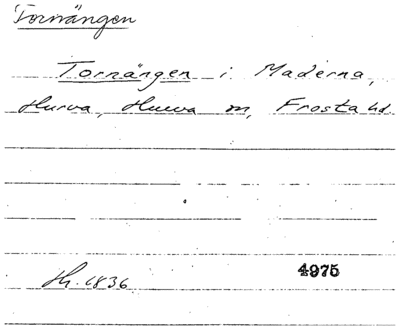 Tornängen
Tornängen i Maderna,
Hurva, Hurva sn, Frosta hd.
Hh. 1836
4975